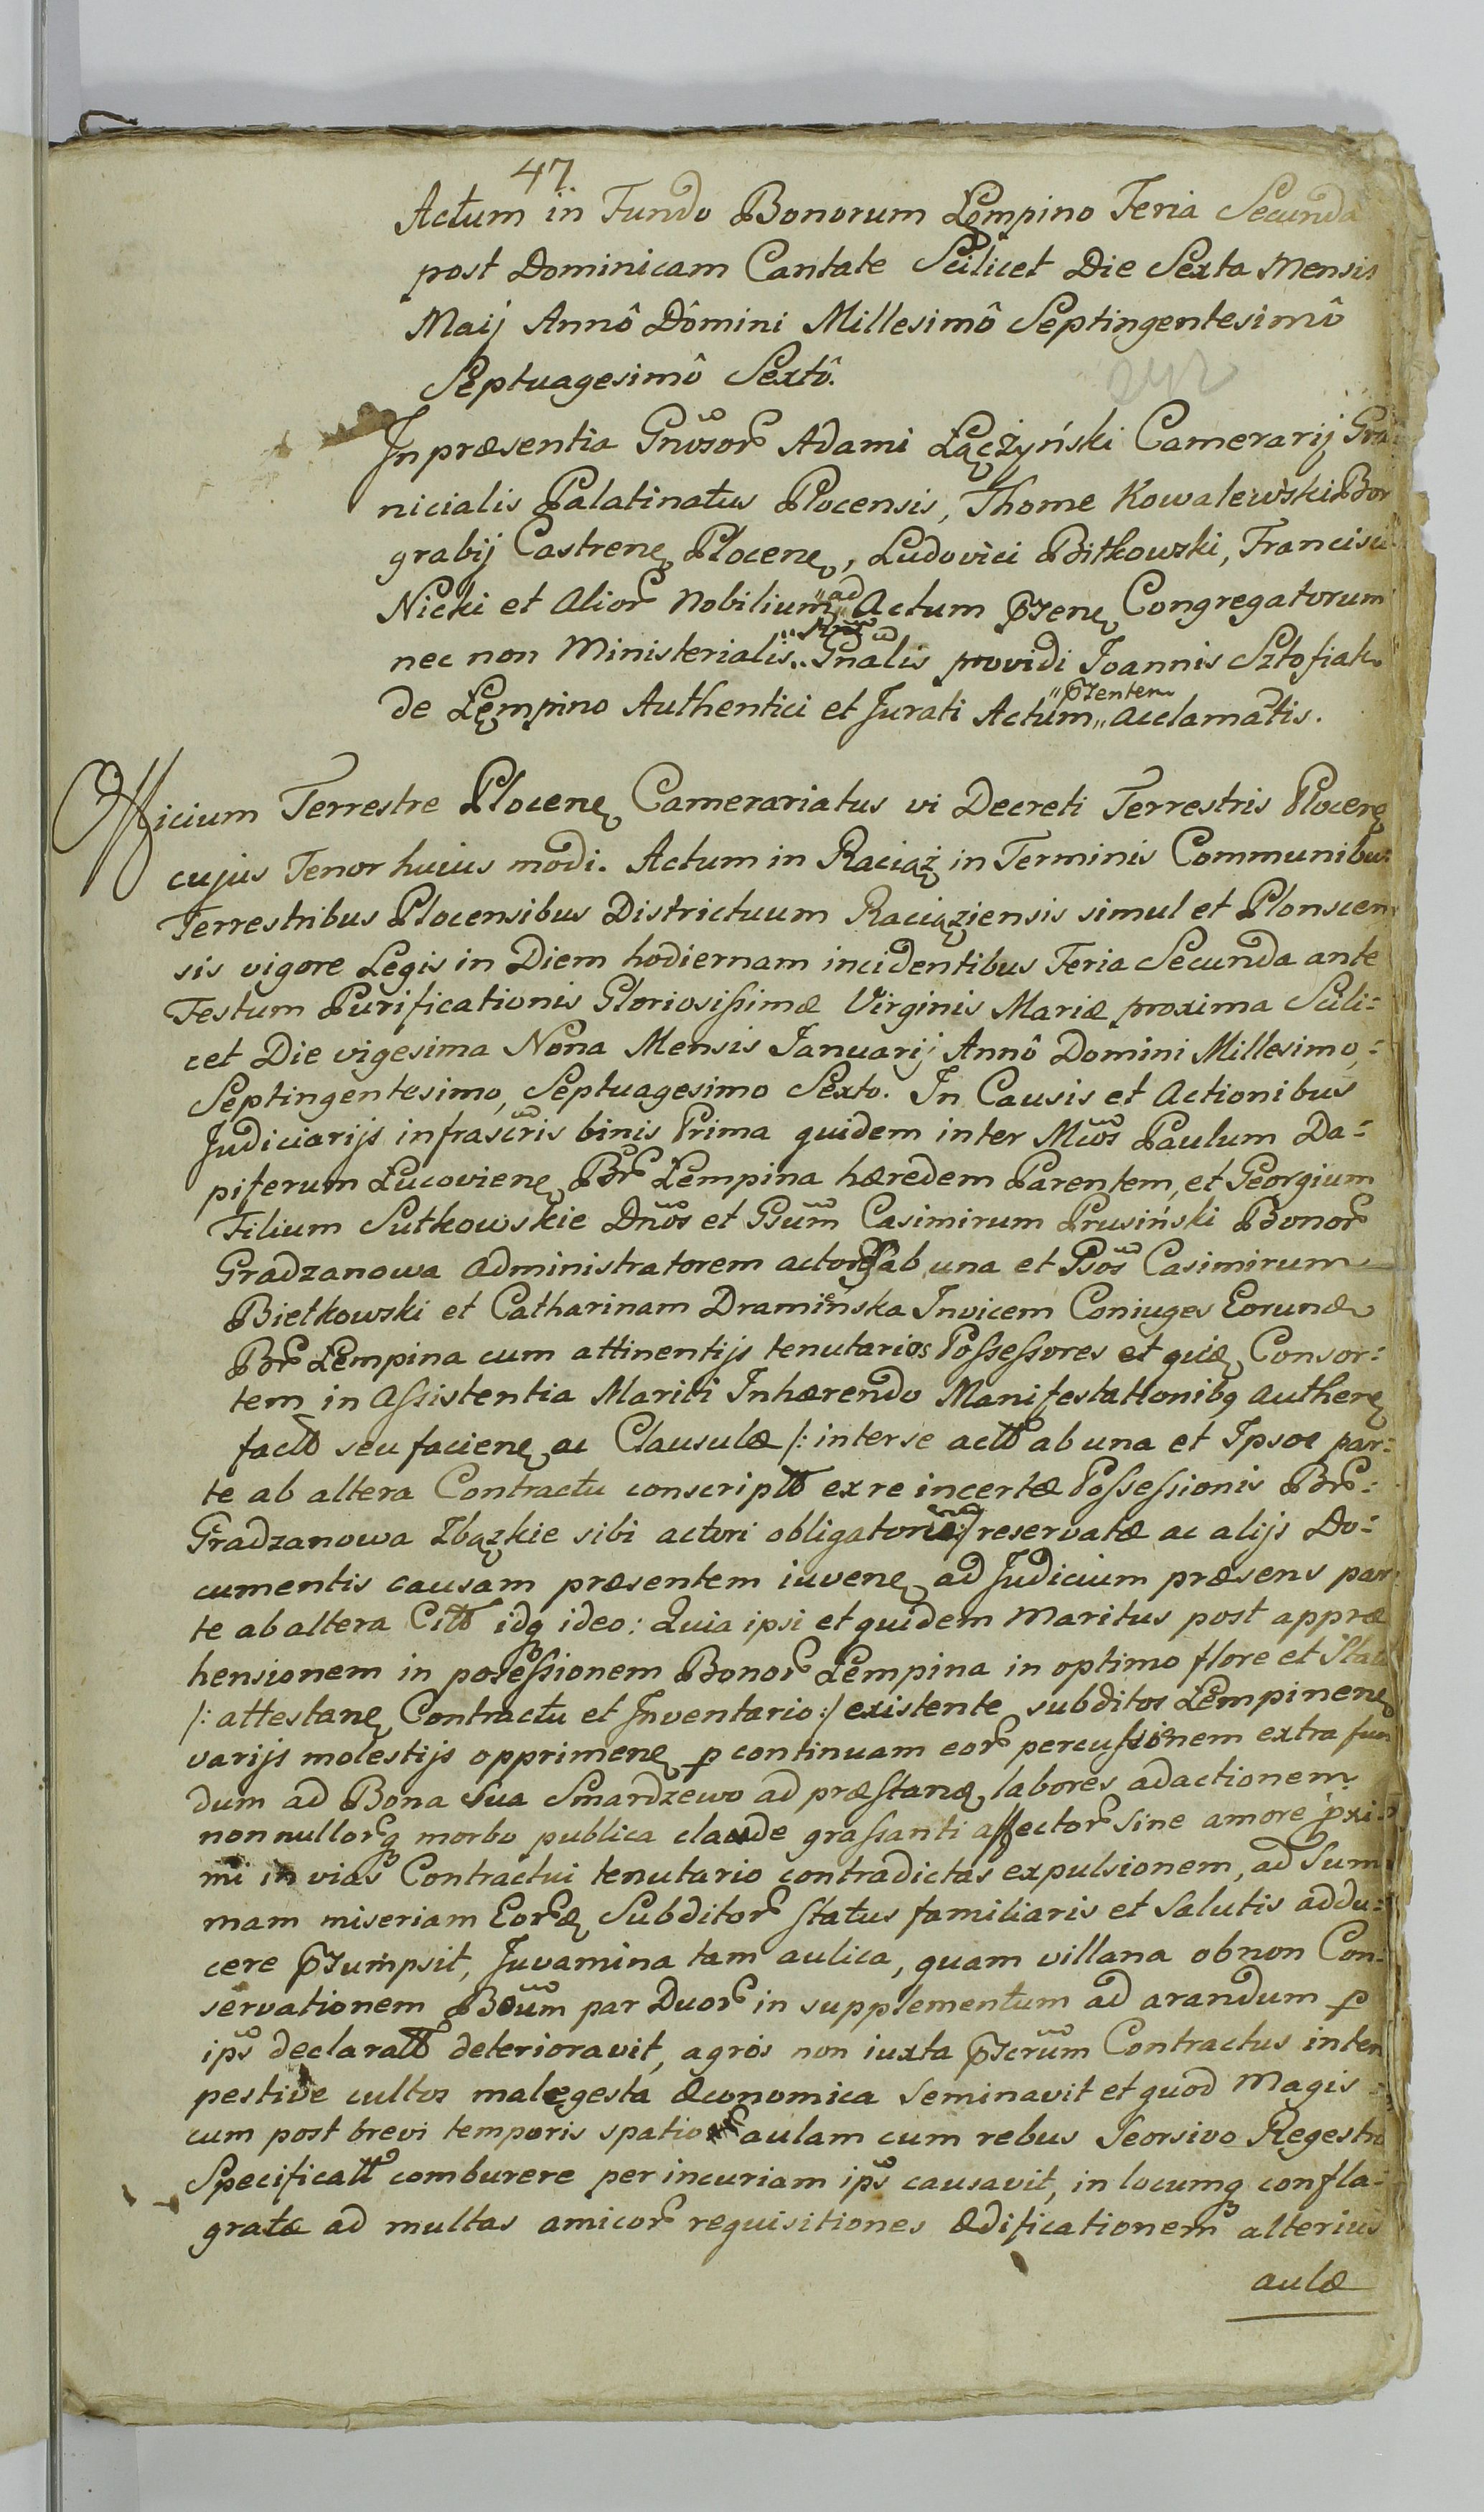 47
Actum in Fundo Bonorum Lempino Feria Secunda
post Dominicam Cantate Scilicet Die Sexta Mensis
Maij Annô Dômini Millesimô Septingentesimô
Septuagesimô Sextô.
In præsentia Gnõsor Adami Łączyński Camerarij Gra
nicialis Palatinatus Plocensis, Thome Kowalewski Bor
grabij Castrenę Plocenę, Ludovici Bitkowski, Francisci
Nicki et Alior Nobilium "ad" Actum Pzenę Congregatorum
nec non Ministerialis Gnãlis providi Joannis Sztofiak
de Lempino Authentici et Jurati Actum "Pzentem" acclamãtis.
Officium Terrestre Plocenę Camerariatus vi Decreti Terrestris Plocenę
cujus Tenor huius modi. Actum in Raciąż in Terminis Communibus
Terrestribus Plocensibus Districtuum Raciąziensis simul et Plonscen
sis vigore Legis in Diem hodiernam incidentibus Feria Secunda ante
Festum Purificationis Gloriosissimæ Virginis Mariæ proxima Scili=
cet Die vigesima Nona Mensis Januarij Annô Domini Millesimo,=
Septingentesimo, Septuagesimo Sexto. In Causis et Actionibus
Judiciarijs infrascris binis Prima quidem inter Mcos Paulum Da=
piferum Lucovienę Br Lempina hæredem Parentem, et Georgium
Filium Sutkowskie Dnos et Gsum Casimirum Prusiński Bonor
Gradzanowa Administratorem actor ab una et Gsos Casimirum
Bietkowski et Catharinam Dramińska Invicem Coniuges Eorundę
Br Lempina cum attinentijs tenutarios Possessores et quidę Consor=
tem in Assistentia Mariti Inhærendo Manifestationibq authenę
factt seu facienę ac Clausulæ /: inter se actt ab una et Ipsos par=
te ab altera Contractu conscriptt ex re incertæ Possessionis Br=
Gradzanowa Zbązkie sibi actori obligatoriæ:/ reservatæ ac alijs Do=
cumentis causam præsentem iuvenę ad Judicium præsens par
te ab altera Citt idq ideo: Quia ipsi et quidem Maritus post appræ
hensionem in possessionem Bonor Lempina in optimo flore et Statu
/: attestanę Contractu et Inventario:/ existente subditos Lempinenę
varijs molestijs opprimenę p continuam eor percussionem extra fun
dum ad Bona Sua Smardzewo ad præstandę labores adactionem
nonnullorq morbo publica clade grassanti affector sine amore pxi=
mi in vias Contractui tenutario contradictas expulsionem, ad Sum
mam miseriam Eordę Subditor status familiaris et salutis addu=
cere Pzumpsit, Juvamina tam aulica, quam villana ob non Con=
servationem Boum par Duor in supplementum ad arandum p
ips declaratt deterioravit, agros non iuxta Pzcrum Contractus intem
pestive cultos male gesta œconomica seminavit et quod Magis=
cum post brevi temporis spatio aulam cum rebus Seorsivo Regestro
Specificatt comburere per incuriam ips causavit, in locumq confla=
gratæ ad multas amicor requisitiones ædificationem alterius
aulæ